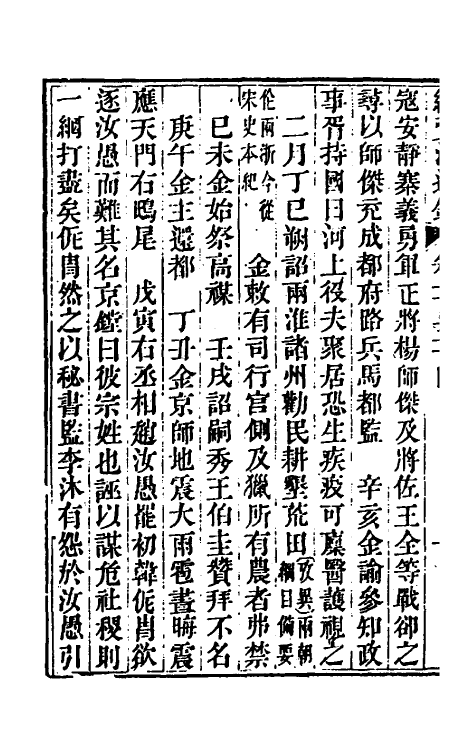 寇安靜寨義勇軍正將楊師傑及將佐王全等戰卻之
尋以師傑充成都府路兵馬都監　辛亥金諭參知政
事胥持國曰河上役夫聚居恐生疾疫可廩醫護視之
二月丁巳朔詔兩淮諸州勸民耕墾荒田攷異兩朝綱目備要
作兩浙今從宋史本紀　金敕有司行宮側及獵所有農者弗禁
己未金始祭高禖　壬戌詔嗣秀王伯圭贊拜不名
庚午金主還都　丁丑金京師地震大雨雹晝晦震
應天門右鴟尾　戊寅右丞相趙汝愚罷初韓侂胄欲
逐汝愚而難其名京鏜曰彼宗姓也誣以謀危社稷則
一網打盡矣侂胄然之以秘書監李沐有怨於汝愚引